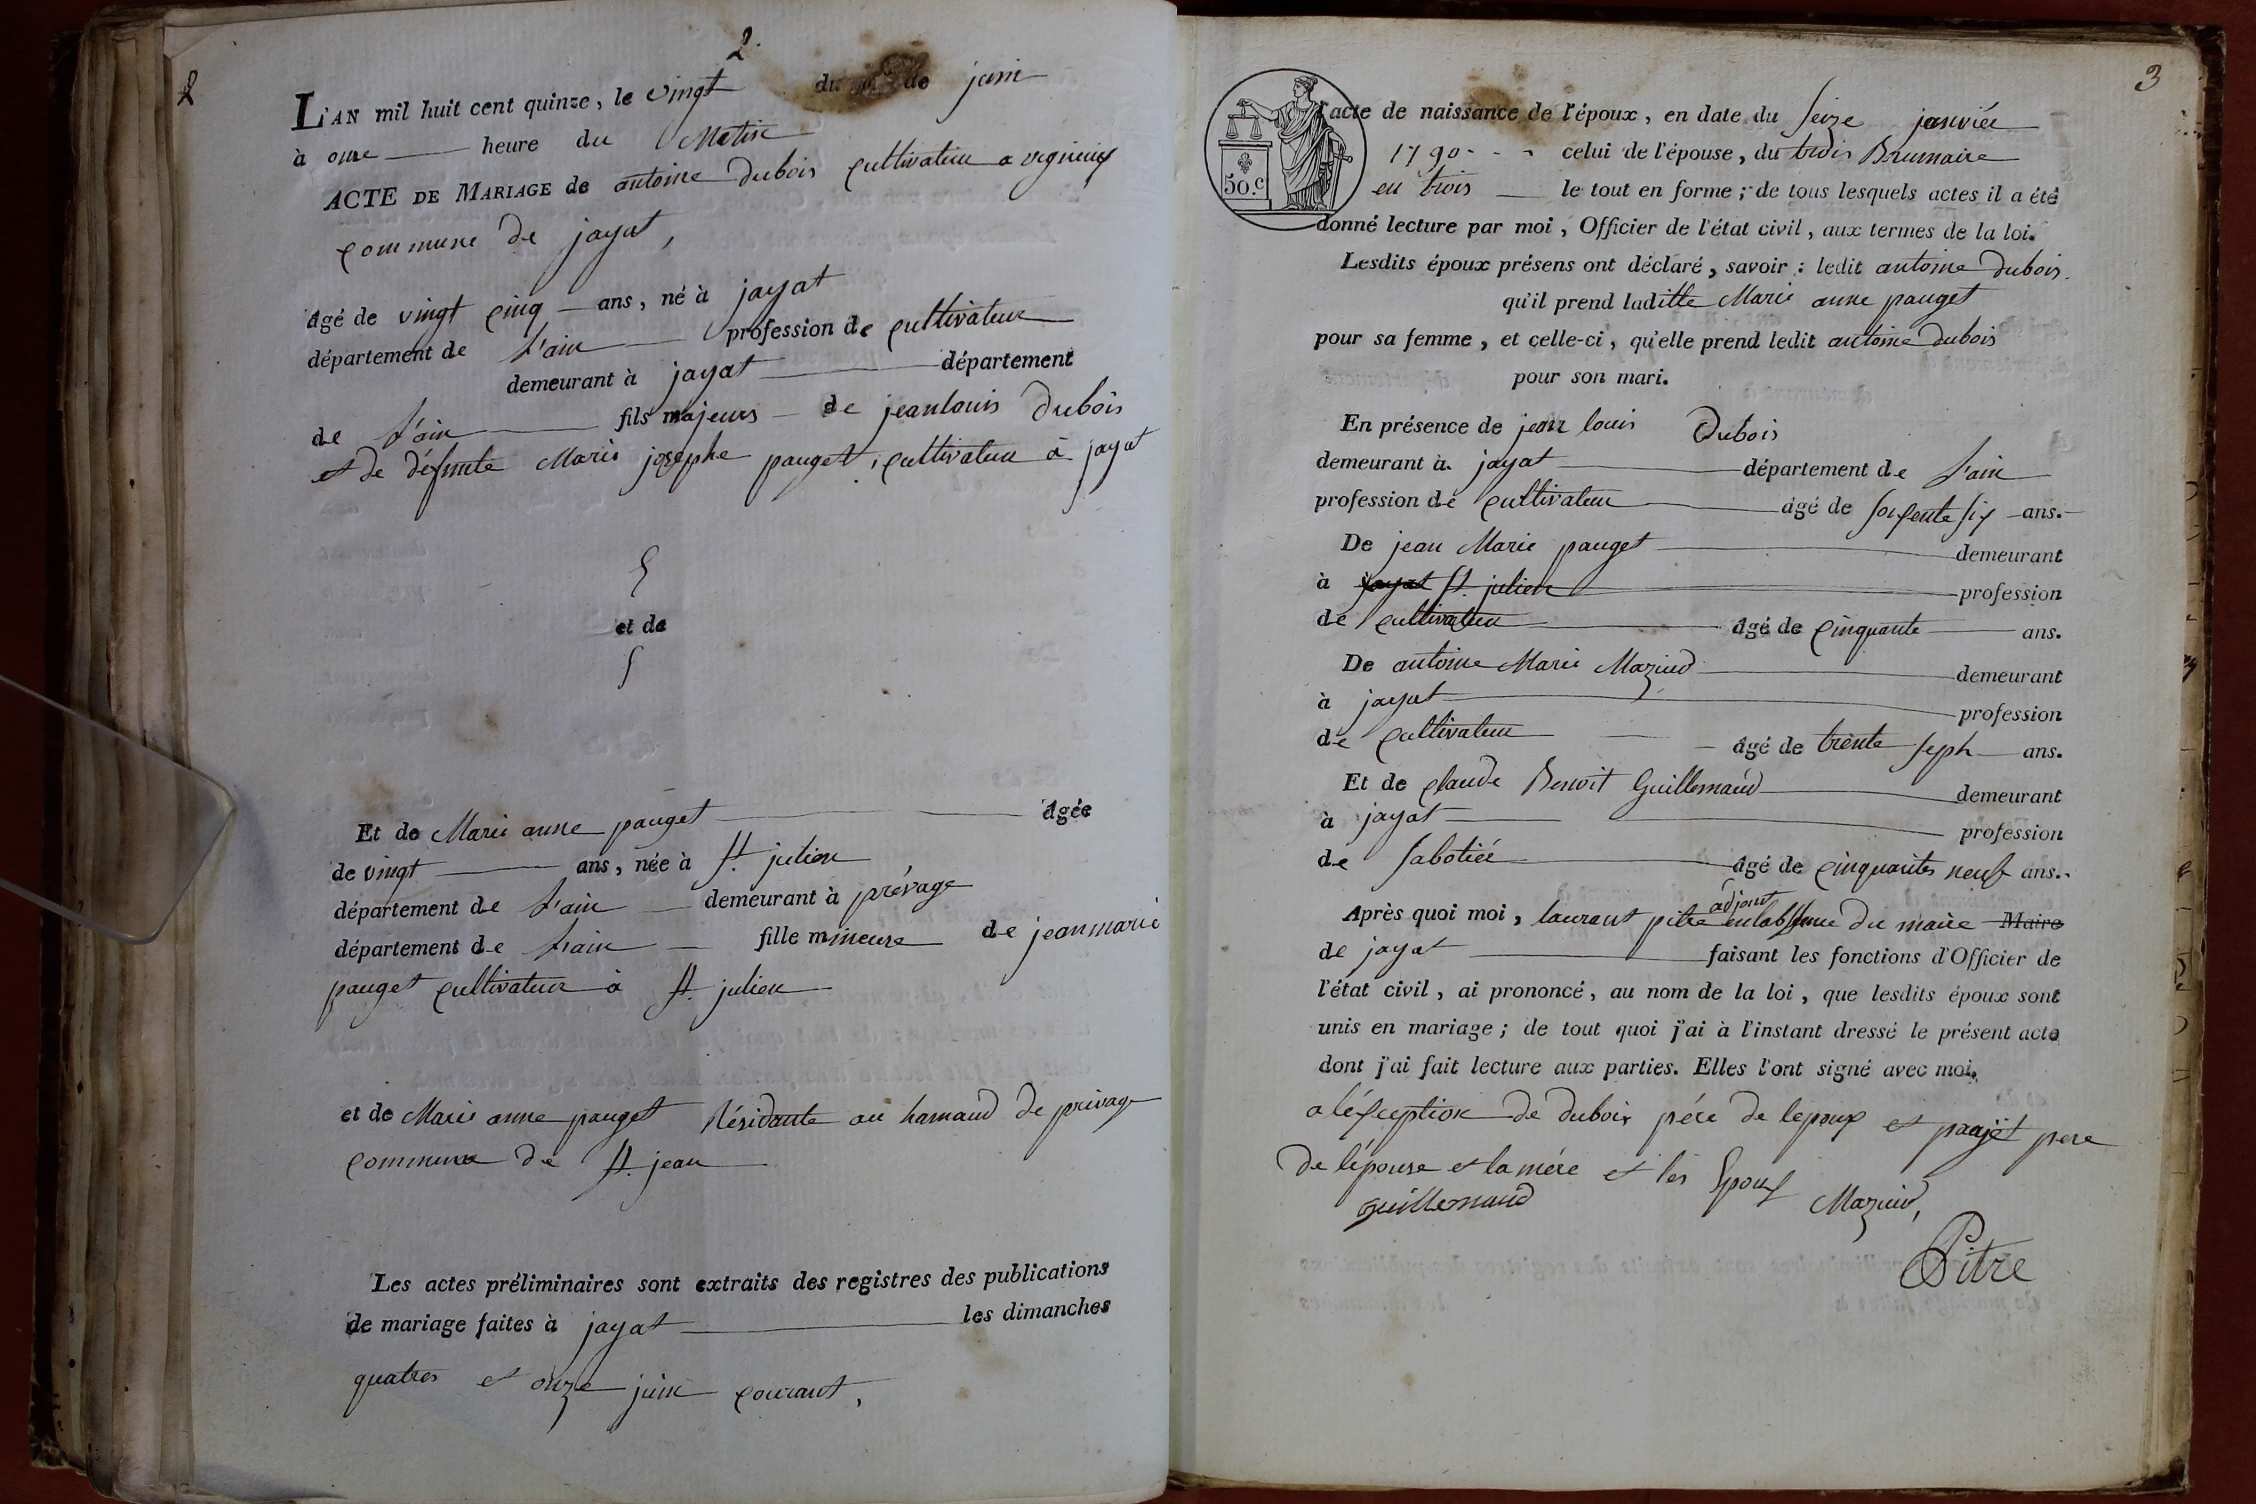 2
2.
L'AN mil huit cent quinze, le vingt du de juin
à onze heure du Matin
ACTE DE MARIAGE de antoine dubois cultivateur a
commune de jayat,
âgé de vingt cinq ans, né à jayat
département de l'ain profession de cultivateur
demeurant à jayat département
de l'ain fils majeurs de jeanlouis dubois
et de défunte Marie josephe pauget, cultivateur à jayat
et de
Et de Marie anne pauget âgée
de vingt ans, née à St. julien
département de l'ain demeurant à prévage
département de l'ain fille mineure de jeanmarie
pauget cultivateur à St. julien
et de Marie anne pauget Résidante au hamaud de privage
commune de St. jean
Les actes préliminaires sont extraits des registres des publications
de mariage faites à jayat les dimanches
quatres et onze juin courant,
3
50.c
l'acte de naissance de l'époux, en date du seize janviér
1790 - - - celui de l'épouse, du trois Brumaire
en trois le tout en forme; de tous lesquels actes il a été
donné lecture par moi, Officier de l'état civil, aux termes de la loi.
Lesdits époux présens ont déclaré, savoir: ledit antoine dubois
qu'il prend laditte Marie anne pauget
pour sa femme, et celle-ci, qu'elle prend ledit antoine dubois
pour son mari.
En présence de jean louis Dubois
demeurant à jayat département de l'ain
profession de cultivateur âgé de soixente six ans.
De jean Marie pauget demeurant
à jayat St. julien profession
de cultivateur âgé de cinquante ans.
De antoine Marie Mazuid demeurant
à jayat profession
de cultivateur âgé de trente seph ans.
Et de claude Benoit Guillemaud demeurant
à jayat profession
de sabotiér âgé de cinquantes neuf ans.
adjoint
Après quoi moi, laurant pitre en labssence du maire Maire
de jayat faisant les fonctions d'Officier de
l'état civil, ai prononcé, au nom de la loi, que lesdits époux sont
unis en mariage; de tout quoi j'ai à l'instant dressé le présent acte
dont j'ai fait lecture aux parties. Elles l'ont signé avec moi.
a léxception de dubois pére de lepoux et paujet pere
de lépouse et la mére et les Epoux
guillemaud Mazuid,
Pitre